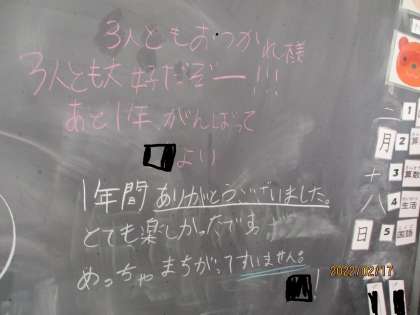 3人ともおつかれ様
3人とも大好だぞー!!!
あと1年、がんばって
より
1年間ありがとうございました。
とても楽しかったです。
めっちゃまちがってすいません。
二
月
十
八
日
1
2
3 算数
4 生活
5 国語
2022/02/17